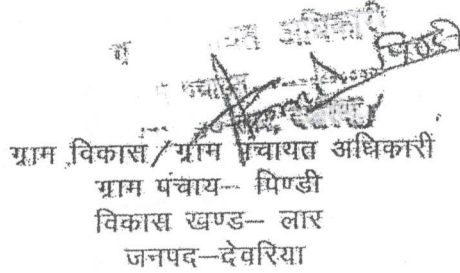 ग्राम विकास/ग्राम पंचायत अधिकारी
ग्राम पंचाय– पिण्डी
विकास खण्ड– लार
जनपद–देवरिया